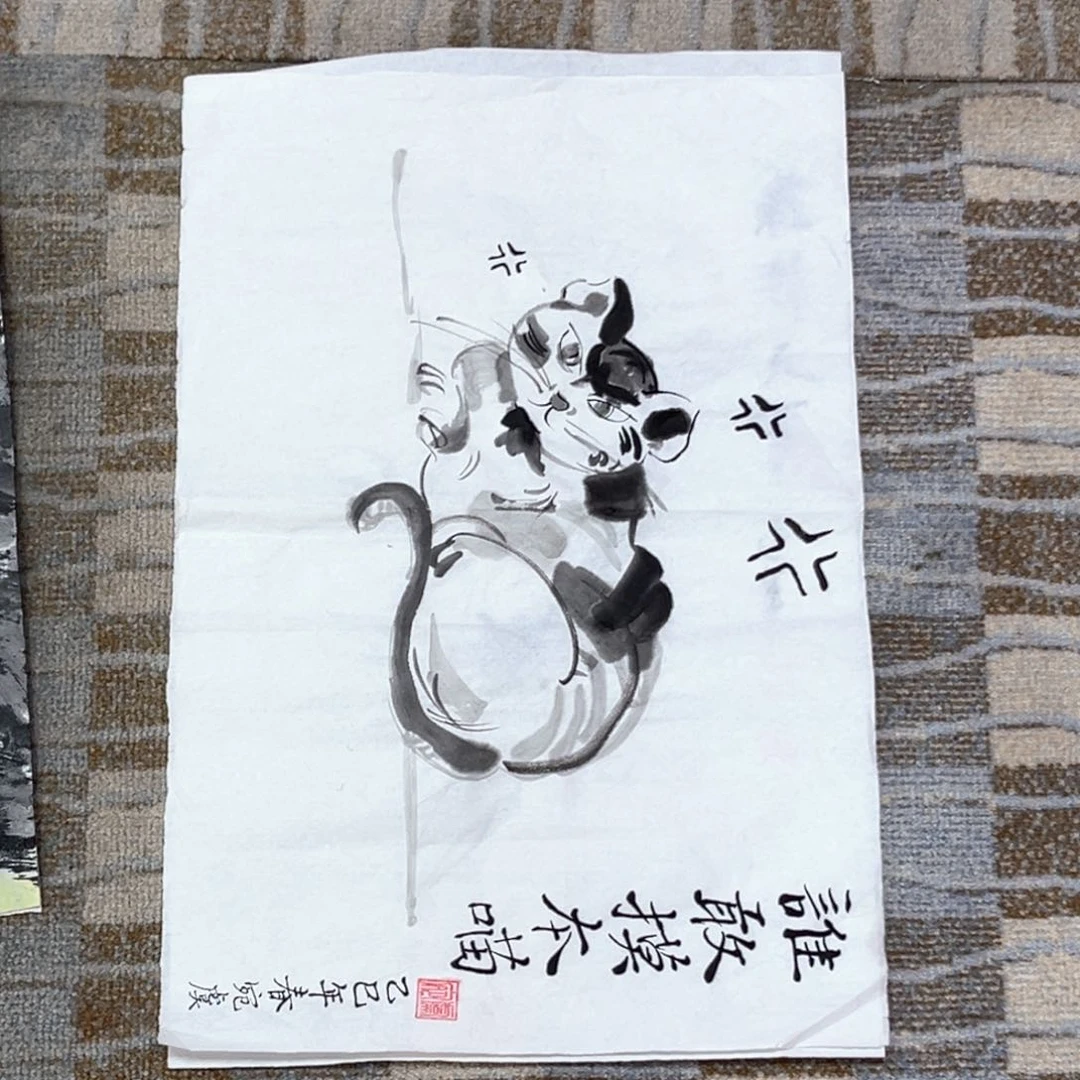 誰敢摸本喵
乙巳年春